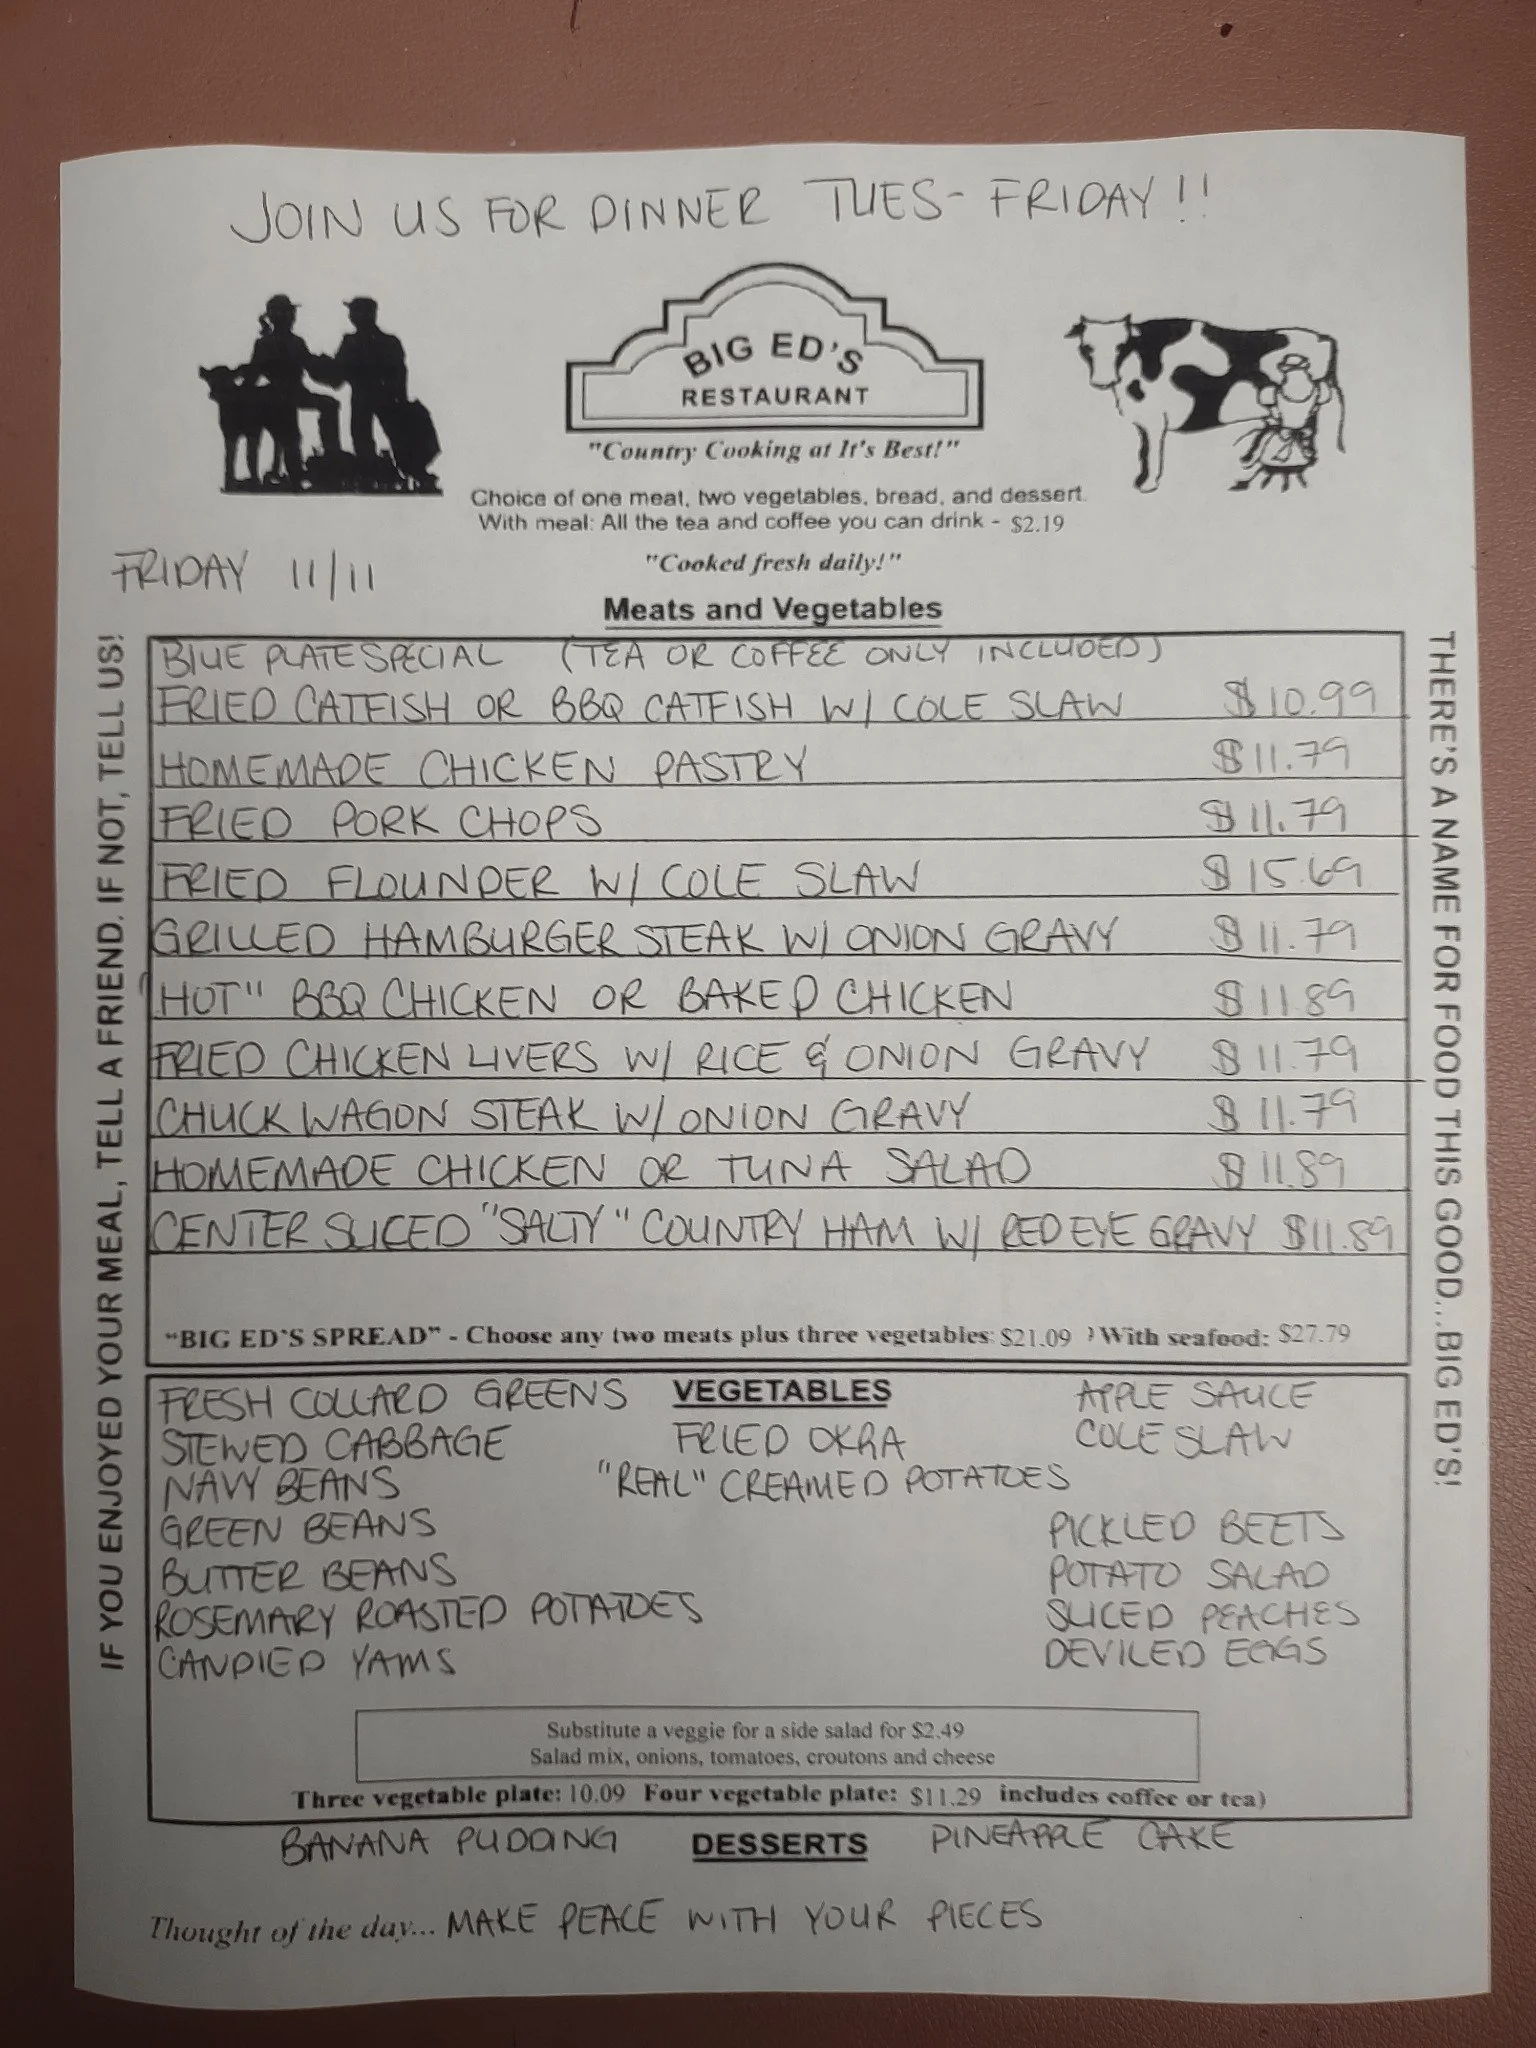 JOIN US FOR DINNER TUES-FRIDAY!!
BIG ED'S
RESTAURANT
"Country Cooking at It's Best!"
Choice of one meat, two vegetables, bread, and dessert.
With meal: All the tea and coffee you can drink - $2.19
FRIDAY 11/11
"Cooked fresh daily!"
Meats and Vegetables
IF YOU ENJOYED YOUR MEAL, TELL A FRIEND. IF NOT, TELL US!
BLUE PLATE SPECIAL (TEA OR COFFEE ONLY INCLUDED)
FRIED CATFISH OR BBQ CATFISH W/ COLE SLAW $10.99
HOMEMADE CHICKEN PASTRY $11.79
FRIED PORK CHOPS $11.79
FRIED FLOUNDER W/ COLE SLAW $15.69
GRILLED HAMBURGER STEAK W/ ONION GRAVY $11.79
"HOT" BBQ CHICKEN OR BAKED CHICKEN $11.89
FRIED CHICKEN LIVERS W/ RICE & ONION GRAVY $11.79
CHUCK WAGON STEAK W/ ONION GRAVY $11.79
HOMEMADE CHICKEN OR TUNA SALAD $11.89
CENTER SLICED "SALTY" COUNTRY HAM W/ RED EYE GRAVY $11.89
"BIG ED'S SPREAD" - Choose any two meats plus three vegetables: $21.09 ) With seafood: $27.79
THERE'S A NAME FOR FOOD THIS GOOD...BIG ED'S!
FRESH COLLARD GREENS VEGETABLES APPLE SAUCE
STEWED CABBAGE FRIED OKRA COLE SLAW
NAVY BEANS "REAL" CREAMED POTATOES
GREEN BEANS PICKLED BEETS
BUTTER BEANS POTATO SALAD
ROSEMARY ROASTED POTATOES SLICED PEACHES
CANDIED YAMS DEVILED EGGS
Substitute a veggie for a side salad for $2.49
Salad mix, onions, tomatoes, croutons and cheese
Three vegetable plate: 10.09 Four vegetable plate: $11.29 includes coffee or tea)
BANANA PUDDING DESSERTS PINEAPPLE CAKE
Thought of the day... MAKE PEACE WITH YOUR PIECES